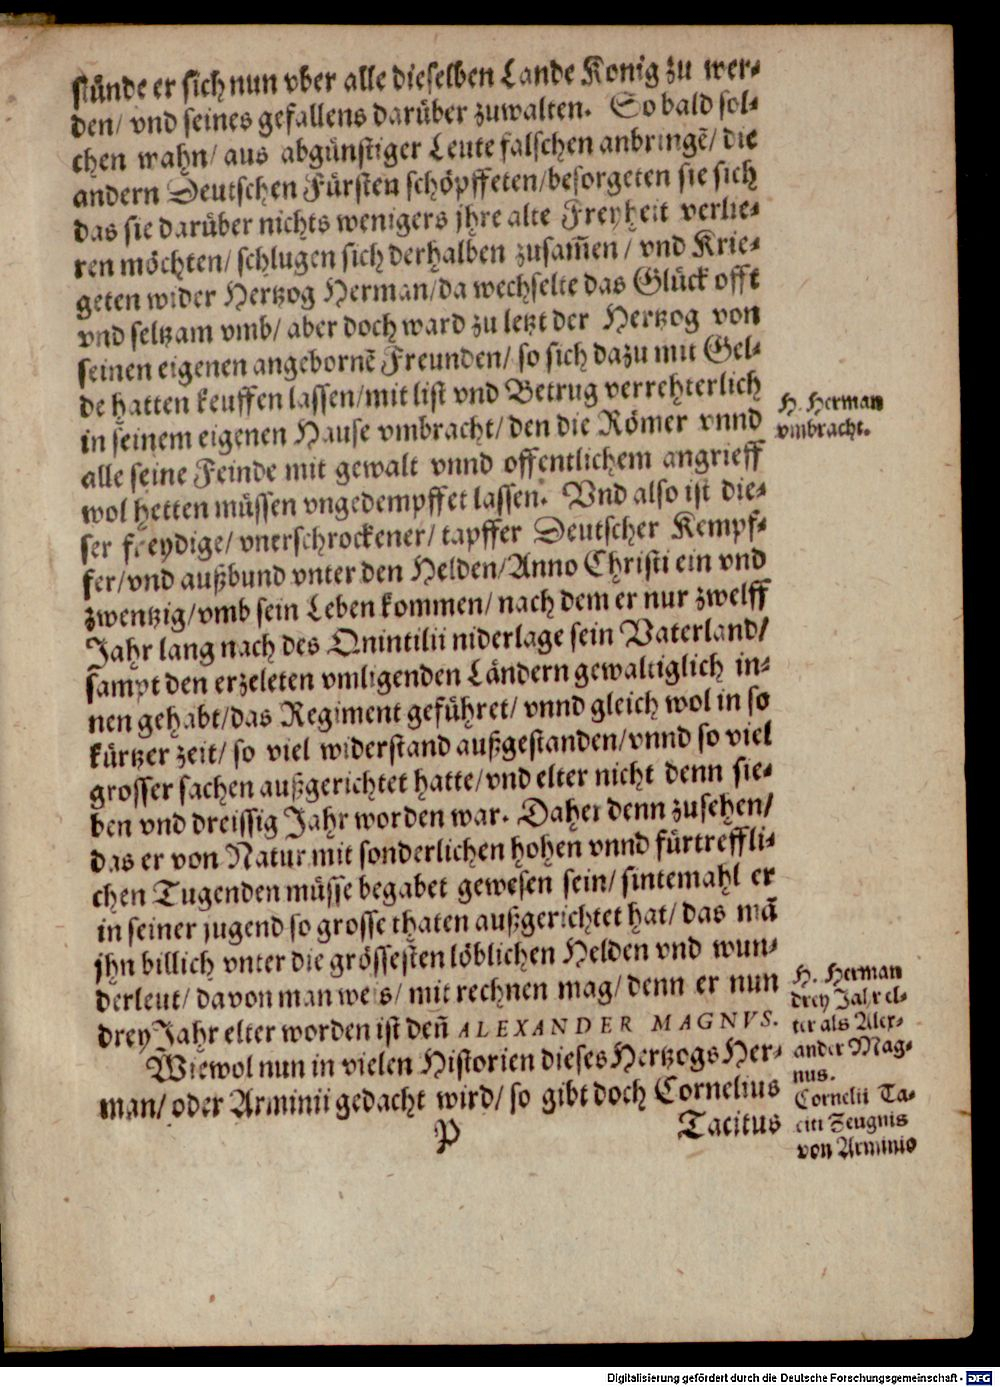 stünde er sich nun vber alle dieselben Lande Konig zu wer-
den/ vnd seines gefallens darüber zuwalten. So bald sol-
chen wahn/ aus abgünstiger Leute falschen anbringē/ die
andern Deutschen Fürsten schöpffeten/besorgeten sie sich
das sie darüber nichts wenigers jhre alte Freyheit verlie-
ren möchten/ schlugen sich derhalben zusam̄en/ vnd Krie-
geten wider Hertzog Herman/da wechselte das Glück offt
vnd seltzam vmb/ aber doch ward zu letzt der Hertzog von
seinen eigenen angebornē Freunden/ so sich dazu mit Gel-
de hatten keuffen lassen/mit list vnd Betrug verrehterlich
in seinem eigenen Hause vmbracht/ den die Römer vnnd
alle seine Feinde mit gewalt vnnd offentlichem angrieff
wol hetten müssen vngedempffet lassen. Vnd also ist die-
ser freydige/ vnerschrockener/ tapffer Deutscher Kempf-
fer/vnd außbund vnter den Helden/Anno Christi ein vnd
zwentzig/vmb sein Leben kommen/ nach dem er nur zwelff
Jahr lang nach des Qnintilii niderlage sein Vaterland/
sampt den erzeleten vmligenden Ländern gewaltiglich in-
nen gehabt/das Regiment geführet/ vnnd gleich wol in so
kürtzer zeit/ so viel widerstand außgestanden/vnnd so viel
grosser sachen außgerichtet hatte/vnd elter nicht denn sie-
ben vnd dreissig Jahr worden war. Daher denn zusehen/
das er von Natur mit sonderlichen hohen vnnd fürtreffli-
chen Tugenden müsse begabet gewesen sein/ sintemahl er
in seiner jugend so grosse thaten außgerichtet hat/ das mā
jhn billich vnter die grössesten löblichen Helden vnd wun-
derleut/ davon man weis/ mit rechnen mag/ denn er nun
drey Jahr elter worden ist den̄ ALEXANDER MAGNVS.
Wiewol nun in vielen Historien dieses Hertzogs Her-
man/ oder Arminii gedacht wird/ so gibt doch Cornelius
P Tacitus
H. Herman
vmbracht.
H. Herman
drey Jahr el-
ter als Alex-
ander Mag-
nus.
Cornelii Ta-
citi Zeugnis
von Arminio
Digitalisierung gefördert durch die Deutsche Forschungsgemeinschaft - DFG